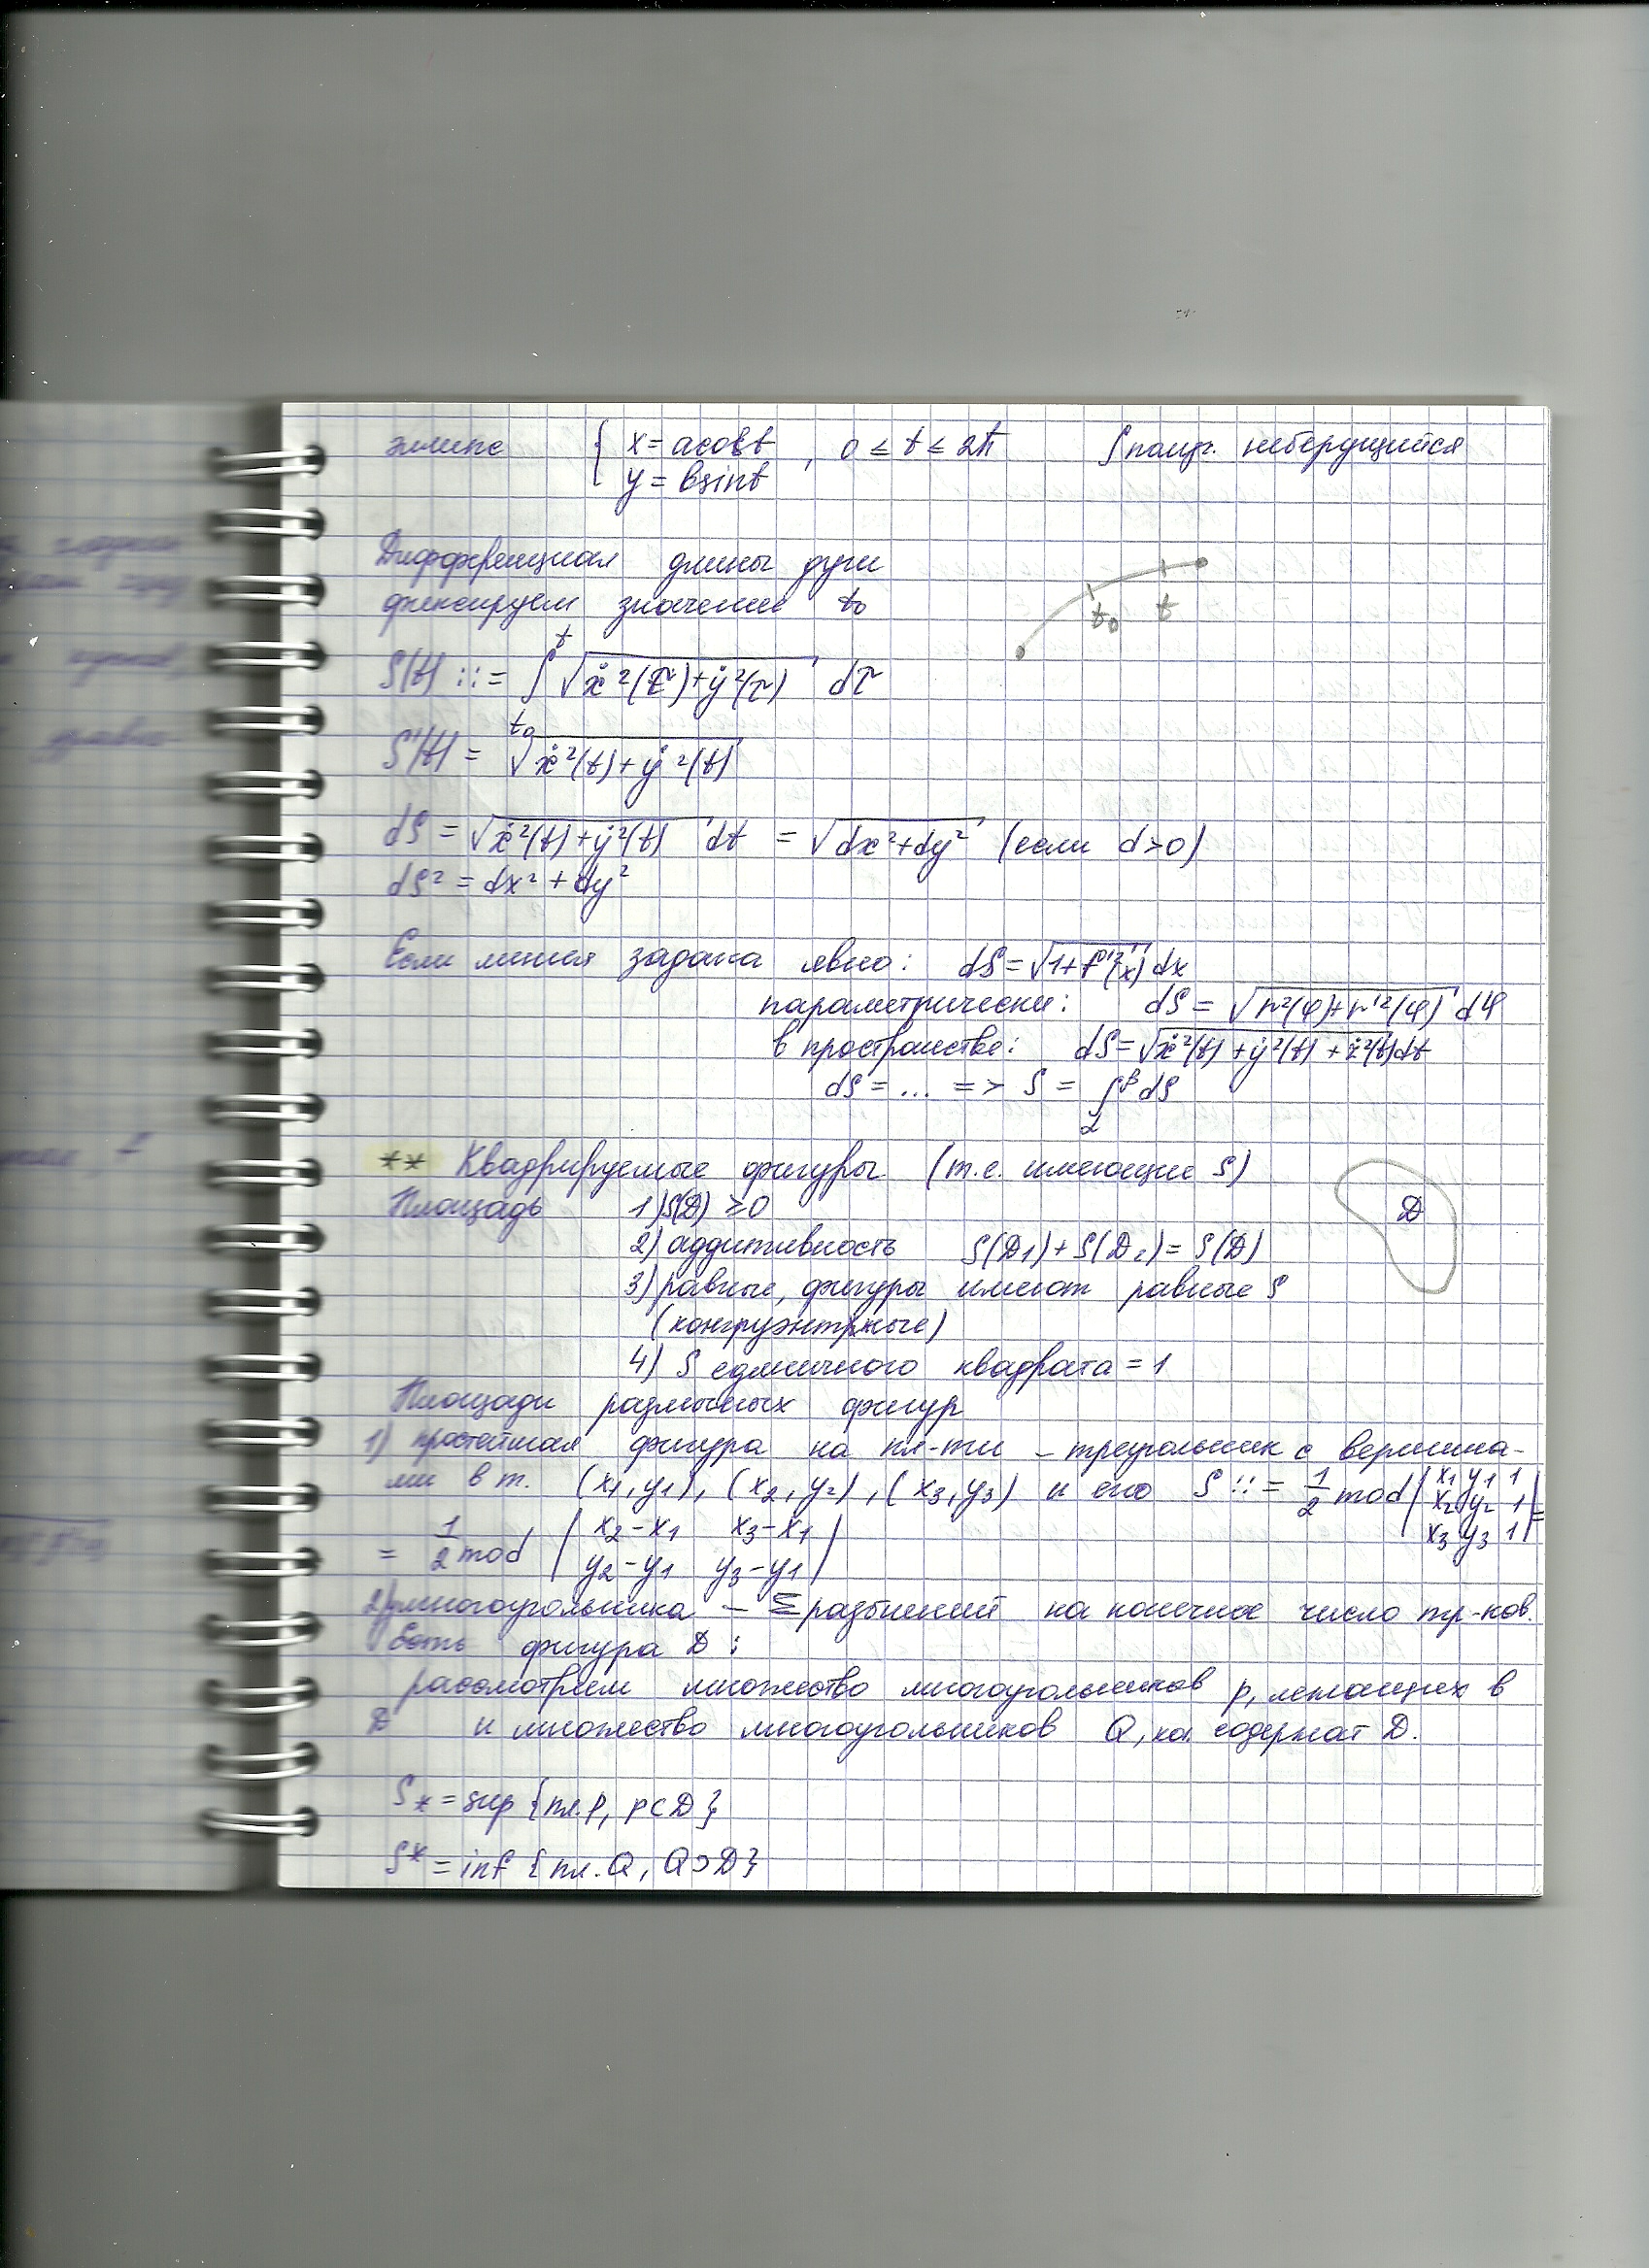 элипс { x = acost , 0 ≤ t ≤ 2π ∫ получ. неберущийся
y = bsint
Дифференциал длины дуги
фиксируем значение t₀
t₀ t
S(t) ::= ∫ₜ₀ᵗ √(ẋ²(τ)+ẏ²(τ)) dτ
S'(t) = √(ẋ²(t)+ẏ²(t))
dS = √(ẋ²(t)+ẏ²(t)) dt = √(dx²+dy²) (если d>0)
dS² = dx² + dy²
Если линия задана явно: dS = √(1+f'²(x)) dx
параметрически: dS = √(r²(φ)+r'²(φ)) dφ
в пространстве: dS = √(ẋ²(t)+ẏ²(t)+ż²(t)) dt
dS = ... => S = ∫ dS
** Квадрируемые фигуры (т.е. имеющие S)
D
Площадь 1) S(D) ≥ 0
2) аддитивность S(D₁)+S(D₂) = S(D)
3) равные, фигуры имеют равные S
(конгруэнтные)
4) S единичного квадрата = 1
Площади различных фигур
1) простейшая фигура на пл-ти – треугольник с вершина-
ми в т. (x₁,y₁), (x₂,y₂), (x₃,y₃) и его S ::= 1/2 mod |x₁ y₁ 1; x₂ y₂ 1; x₃ y₃ 1| =
= 1/2 mod |x₂-x₁ x₃-x₁; y₂-y₁ y₃-y₁|
2) многоугольника – Σ разбиений на конечное число тр-ков.
фигура D :
рассмотрим множество многоугольников p, лежащих в
D и множество многоугольников Q, содержат D.
S* = sup {пл. p, p⊂D}
S* = inf {пл. Q, Q⊃D}